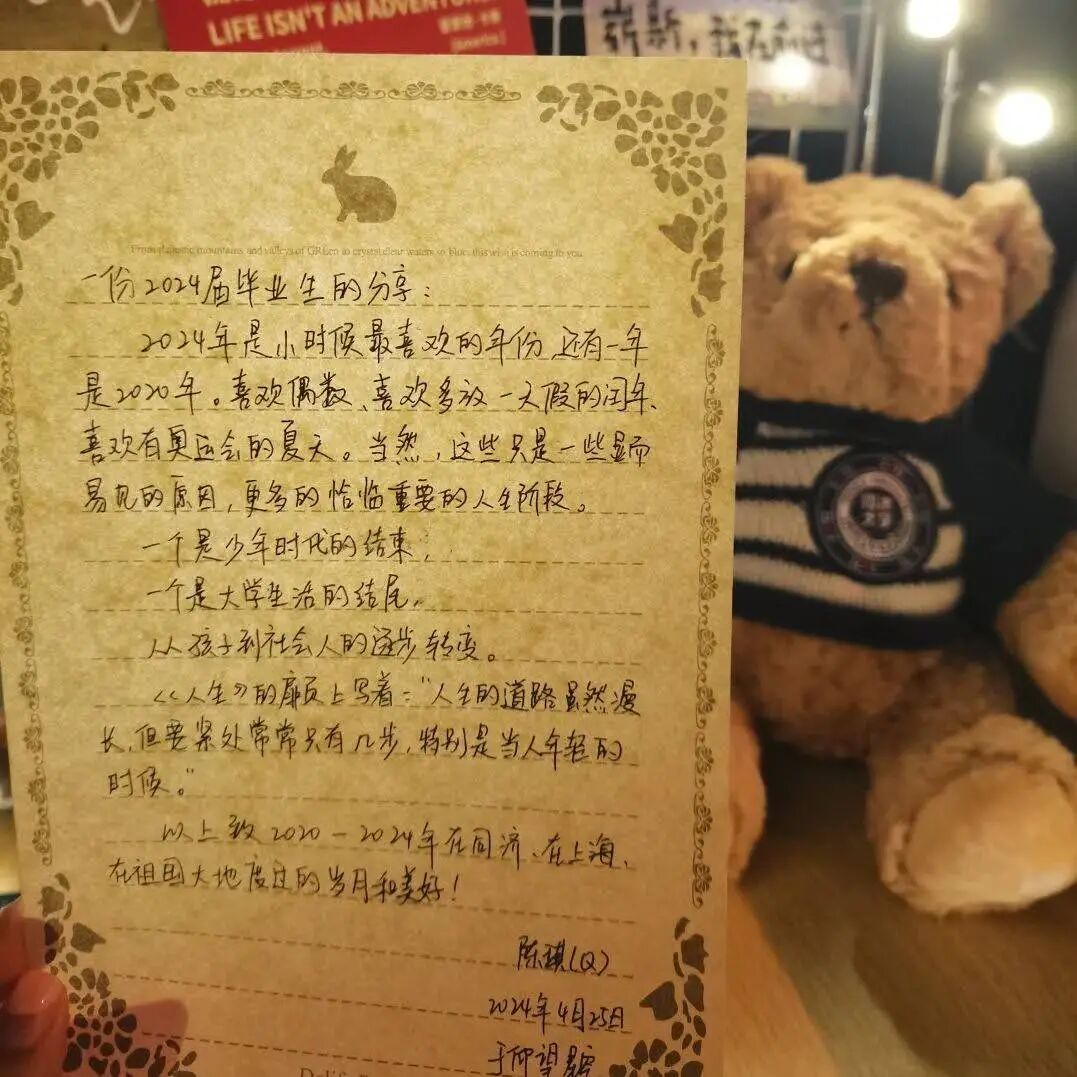 LIFE ISN'T AN ADVENTURE
崭新,我不
From majestic mountains and valleys of GREen to crystal clear waters so blue, this wish is coming to you
一份2024届毕业生的分享:
2024年是小时候最喜欢的年份,还有一年
是2020年。喜欢偶数、喜欢多放一天假的闰年、
喜欢有奥运会的夏天。当然,这些只是一些显而
易见的原因,更多的恰临重要的人生阶段。
一个是少年时代的结束,
一个是大学生活的结尾。
从孩子到社会人的逐步转变。
《人生》的扉页上写着:“人生的道路虽然漫
长,但要紧处常常只有几步,特别是当人年轻的
时候。”
以上致2020-2024年在同济、在上海、
在祖国大地度过的岁月和美好!
陈琪(Q)
2024年4月25日
于仰望